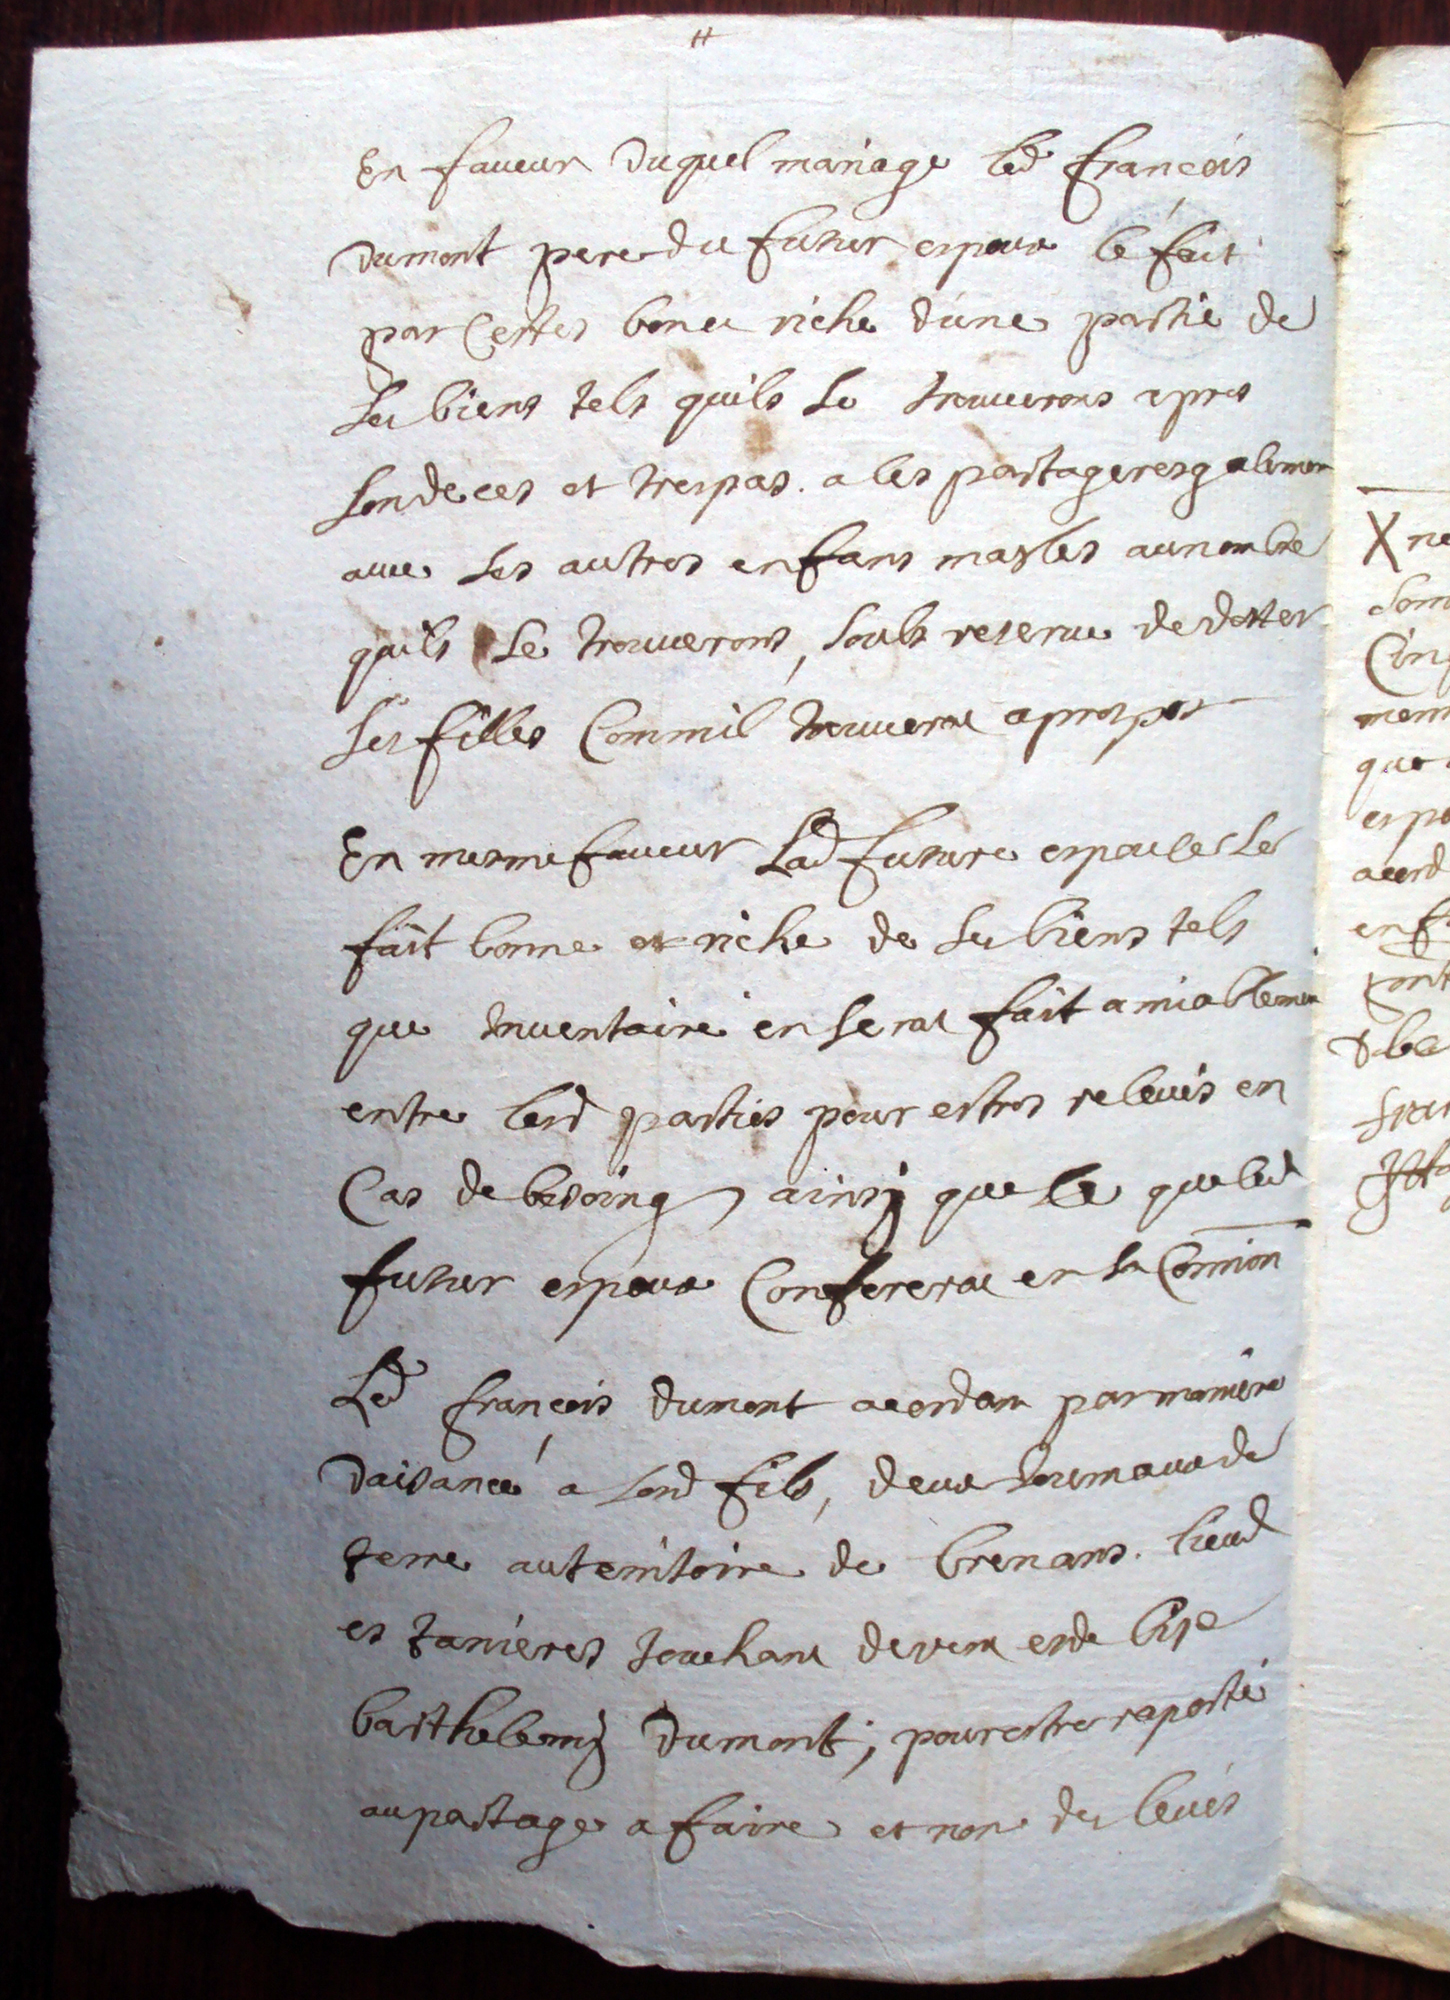 En faveur duquel mariage led françois
dumont pere du futur espoux le fait
par Cestes bon et riche d'une partie de
ses biens tels quils se trouveront apres
son deces et trespas. a les partager esgalement
avec ses autres enfans masles au nombre
quils se trouveront, soubs reserve de dotter
ses filles Comm'il trouverat a propos
En mesme faveur Lad future espouse se
fait bonne et riche de ses biens tels
que Inventaire en serat fait amiablement
entre lesd parties pour estres relevés en
Cas de besoing, ainsy que ce que led
futur espoux Confererat en la Coniōn
Led françois dumont acordant par maniere
daisance a sond fils, deux Journaux de
terre au teritoire de brenans. lieud
es tanieres touchant de vent et de bise
barthelemy dumont; pour estre raporté
au partage a faire et non des levés
X ne
som
Cinq
mem
que
espo
acord
enf